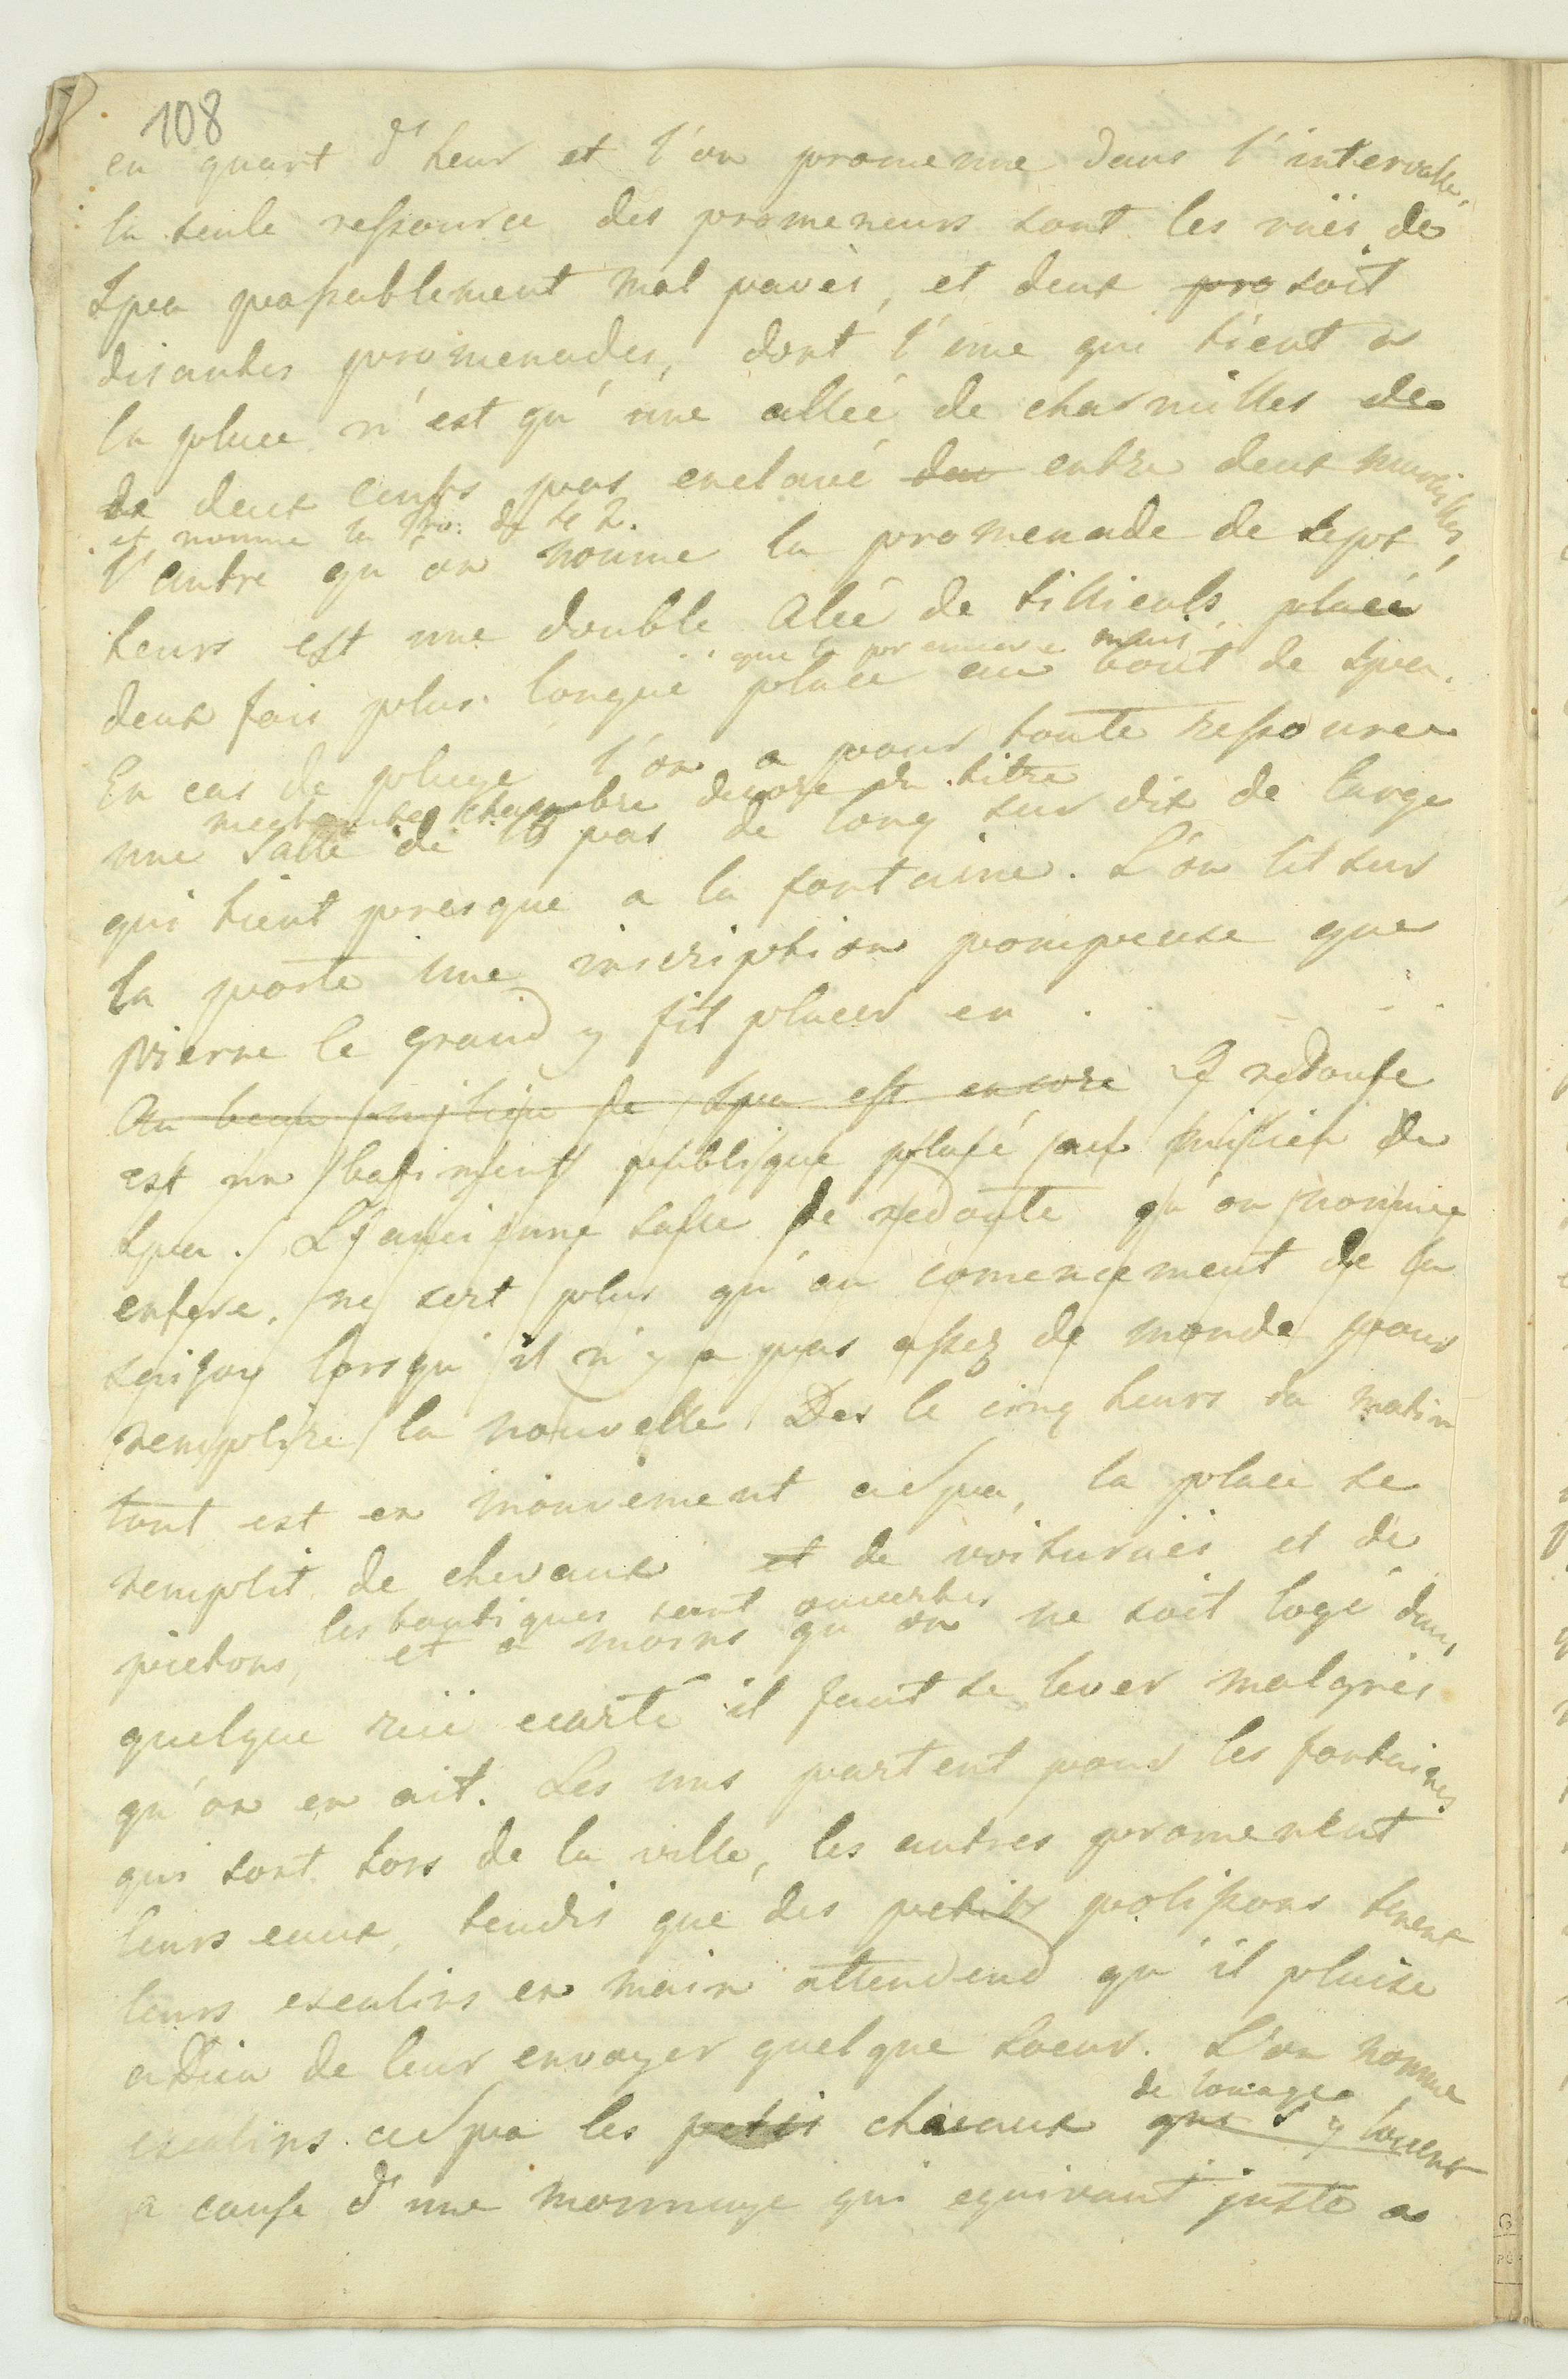 108
en quart d'heur et l'on promenne dans l'intervalle,
la seule ressource des promeneurs sont les rües de
Spa passablement mal pavés, et deux pro soit
disantes promenades, dont l'une qui tient a
la place n'est qu'une allée de charmilles de
de deux cents pas enclavé dan entre deux murailles,
et nomme la Pro: de 4 h.
l'autre qu'on nomme la promenade de sept
heurs est une double Alée de tillieuls placée
que la premiere mais
deux fois plus longue place au bout de Spa.
En cas de pluye l'on a pour toute ressource
mechante chambre decoré du titre
une Salle de 18 pas de long sur dix de large
qui tient presque a la fontaine. L'on lit sur
la porte une inscription pompeuse que
pierre le grand y fit placer en . . . . .
Au beau milieu de Spa est encore le redoute
est un batiment publique placé au milieu de
Spa. L'ancienne salle de redoute qu'on nomme
enfere, ne sert plus qu'au comencement de la
saison lorsqu'il n'y a pas assez de monde pour
remplire la nouvelle. Des le cinq heurs du matin
tout est en mouvement a Spa, la place se
remplit de chevaux et de voitures et de
les boutiques sont ouvertes
pietons, et a moins qu'on ne soit logé dans
quelque rüe ecarté il faut se lever malgrés
qu'on en ait. Les uns partent pour les fontaines
qui sont hors de la ville, les autres promenent
leurs eaux, tendis que des petits polissons tenent
leurs escalins en main attendend qu'il plaise
a Dieu de leur envoyer quelque soeur. L'on nomme
de louage
escalins a Spa les petis chevaux qui s'y louent
a cause d'une monnuye qui equivaut juste a